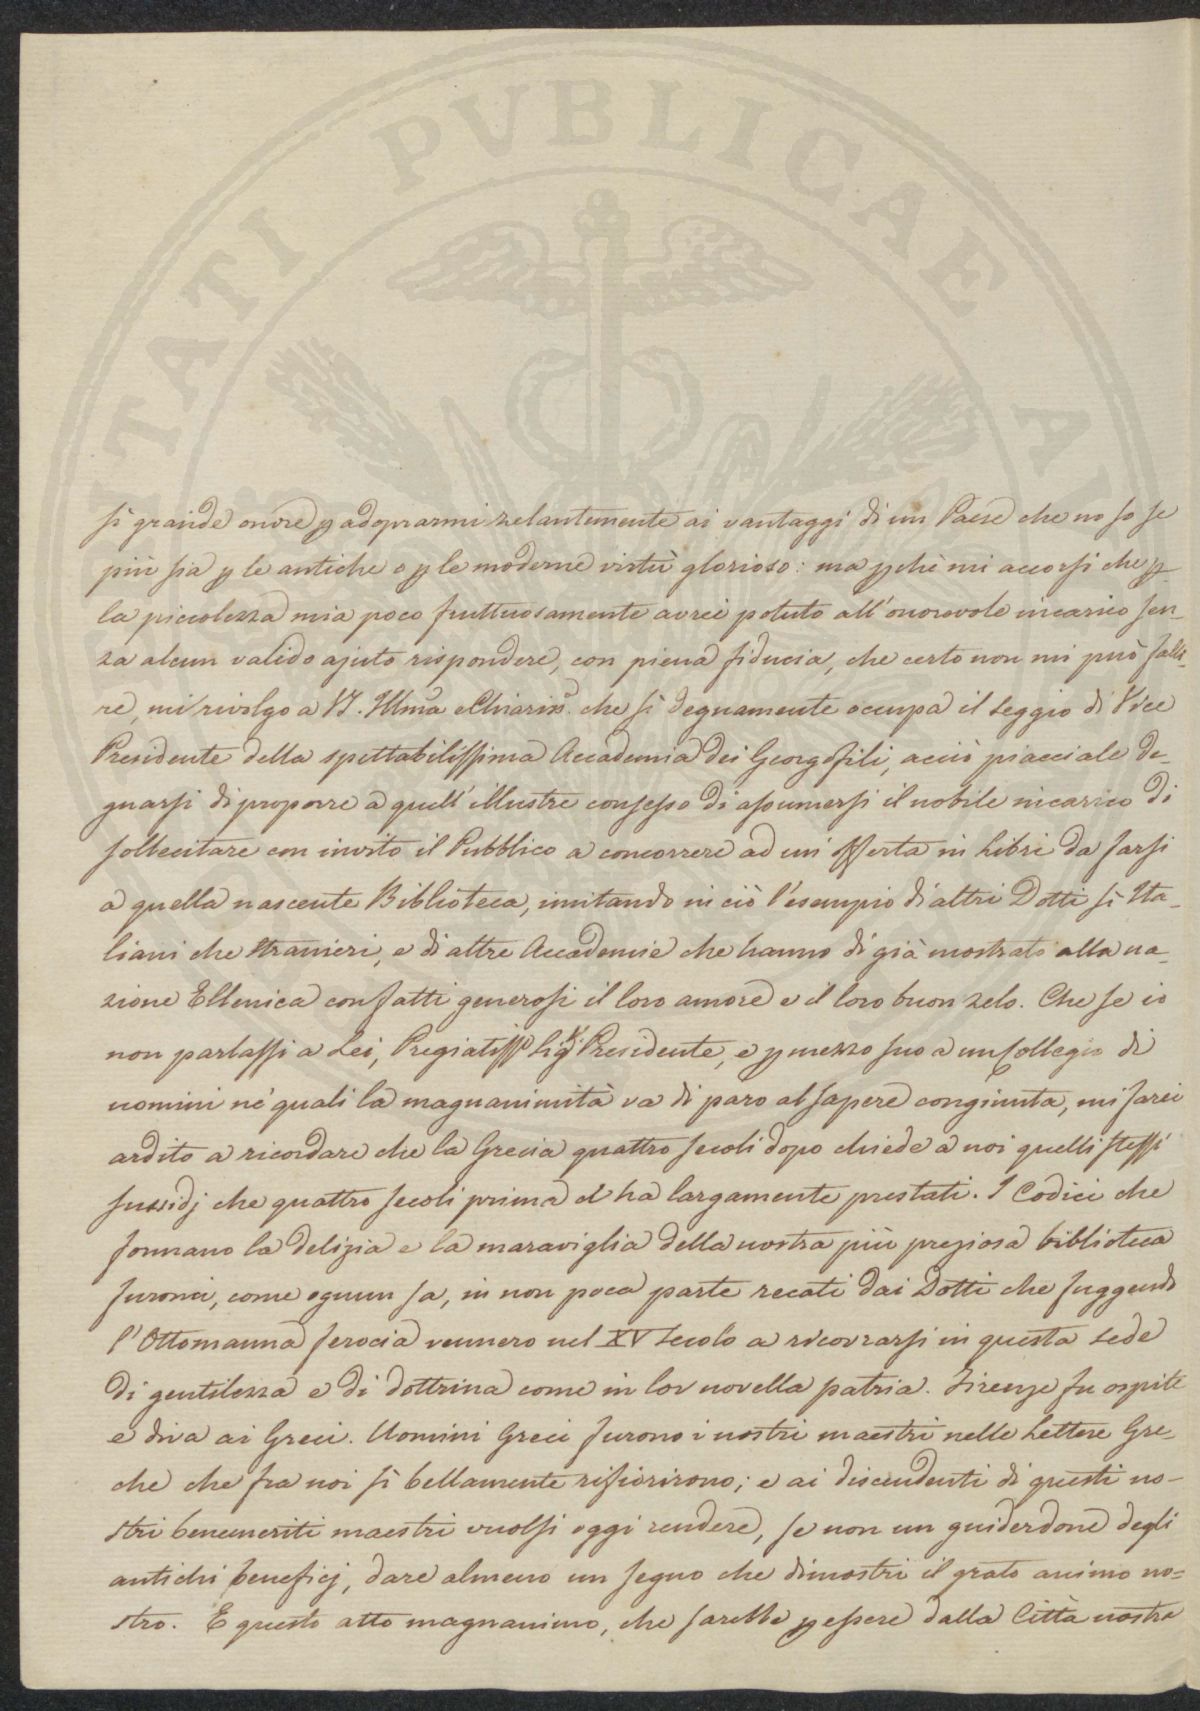 PVBLICAE
TATI
sì grande onore p adoprarmi zelantemente ai vantaggi di un Paese che no so se
più sia p le antiche o p le moderne virtù glorioso: ma pchè mi accorsi che p
la piccolezza mia poco fruttuosamente avrei potuto all'onorevole incarico sen-
za alcun valido ajuto rispondere, con piena fiducia, che certo non mi può falli-
re, mi rivolgo a VS. Illma e Chiarisa. che sì degnamente occupa il seggio di Vice
Presidente della spettabilissima Accademia dei Georgofili, acciò piacciale de-
gnarsi di proporre a quell'illustre consesso di assumersi il nobile incarico di
sollecitare con invito il Pubblico a concorrere ad un'offerta in Libri da farsi
a quella nascente Biblioteca, imitando in ciò l'esempio di altri Dotti sì Ita-
liani che stranieri, e di altre Accademie che hanno di già mostrato alla na-
zione Ellenica con fatti generosi il loro amore e il loro buon zelo. Che se io
non parlassi a Lei, Pregiatisso Sigr. Presidente, e p mezzo suo a un Collegio di
uomini ne' quali la magnanimità va di paro al sapere congiunta, mi farei
ardito a ricordare che la Grecia quattro secoli dopo chiede a noi quelli stessi
sussidj che quattro secoli prima ci ha largamente prestati. I Codici che
formano la delizia e la maraviglia della nostra più preziosa biblioteca
furono, come ognun sa, in non poca parte recati dai Dotti che fuggendo
l'Ottomanna ferocia vennero nel XV secolo a ricovrarsi in questa sede
di gentilezza e di dottrina come in lor novella patria. Firenze fu ospite
e diva ai Greci. Uomini Greci furono i nostri maestri nelle Lettere Gre-
che che fra noi sì bellamente rifiorirono; e ai discendenti di questi no-
stri benemeriti maestri vuolsi oggi rendere, se non un guiderdone degli
antichi beneficj, dare almeno un segno che dimostri il grato animo no-
stro. E questo atto magnanimo, che sarebbe p essere dalla Città nostra